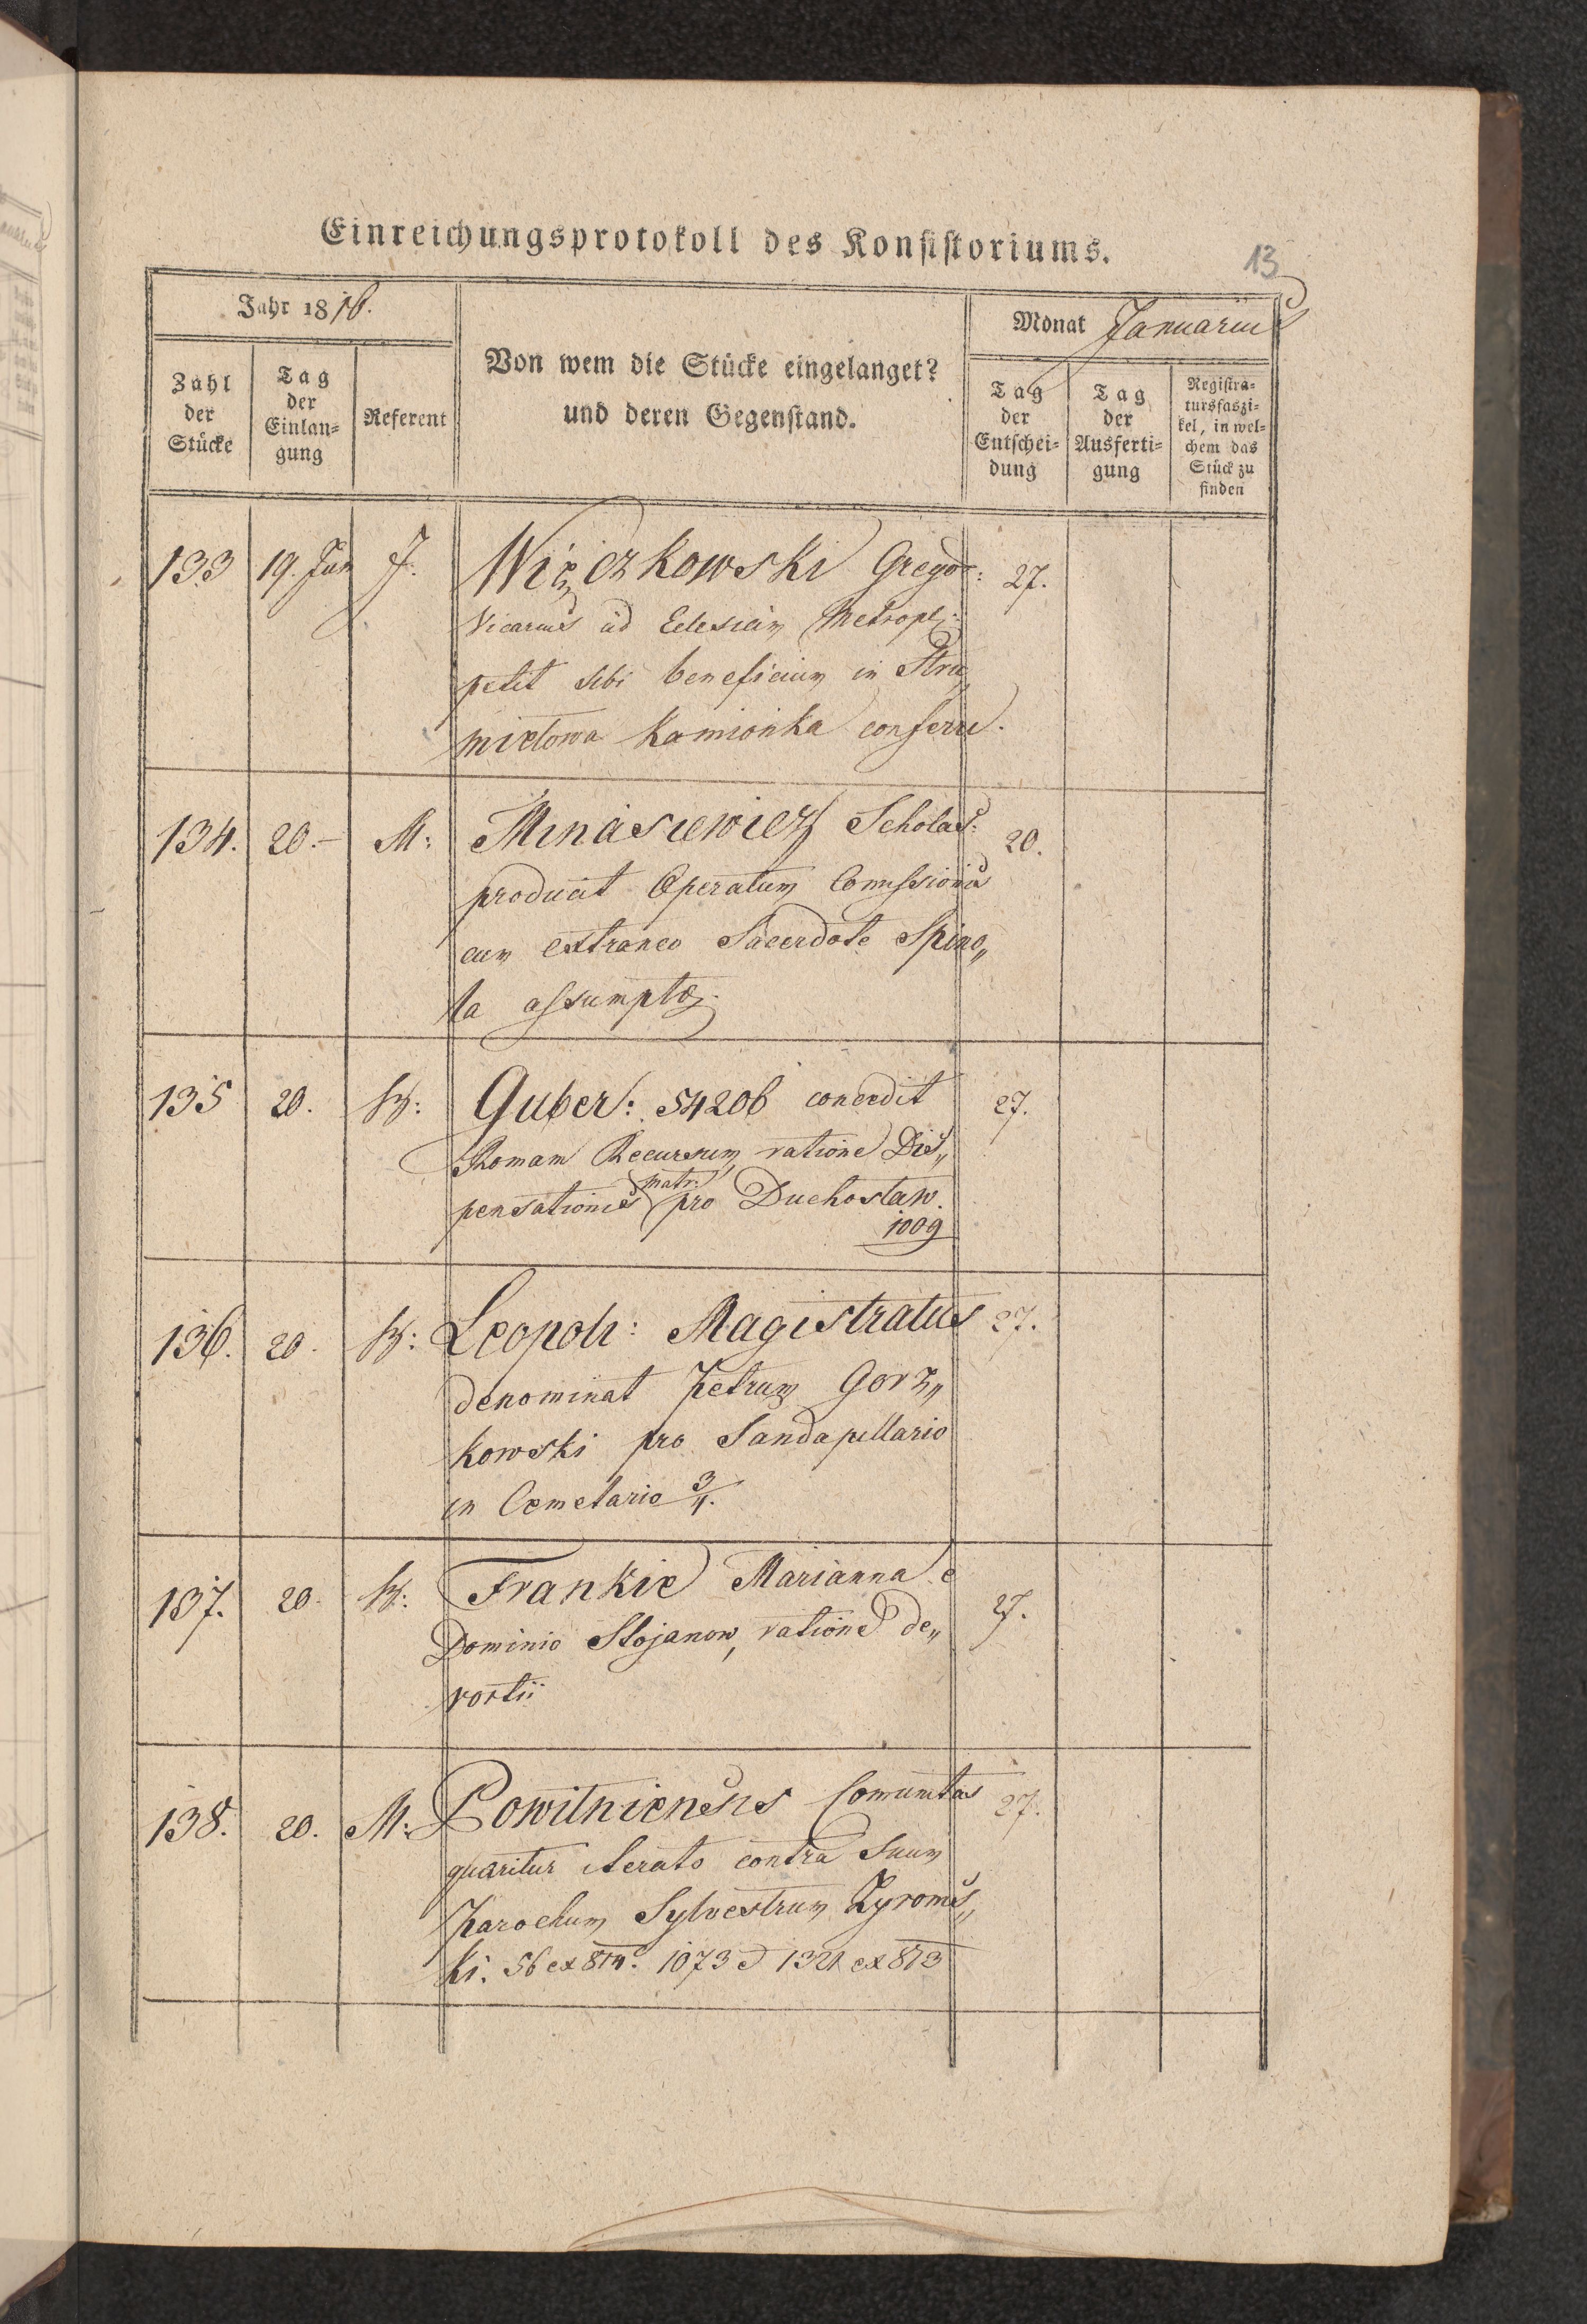 Einreichungsprotokoll des Konsistoriums.
13
Jahr 1816.
Monat Januarius
Zahl der Stücke
Tag der Einlan=gung
Referent
Von wem die Stücke eingelanget?
und deren Gegenstand.
Tag der Entschei=dung
Tag der Ausferti=gung
Registra=tursfaszi=kel, in wel=chem das Stück zu finden
133 19. Jan J. Więczkowski Gregor: 27.
Vicarius ad Eclesiam Metropl:
petit sibi beneficium in Stru
mietowa Kamionka conferri.
134. 20.- M: Minasiewicz Scholas: 20.
producit Operatum Comissionis
cum extraneo Sacerdote Spino„
la assumptæ.
135 20. Guber: 54206 concedit 27.
Romam Recursum ratione Dis„
pensationis matr: pro Duchostaw.
1009
136. 20. Leopol: Magistratus 27.
denominat Petrum Gorz„
kowski pro Sandapillario
in Cemetario 3/4.
137. 20. Frankie Marianna e 27.
Dominio Stojanow, ratione de„
vortii
138. 20. M. Powitniensis Comunitas 27.
quæritur iterato contra Suum
Parochum Sylvestrum Zyroms„
ki. 56 ex 814. 1073 et 1321 ex 813